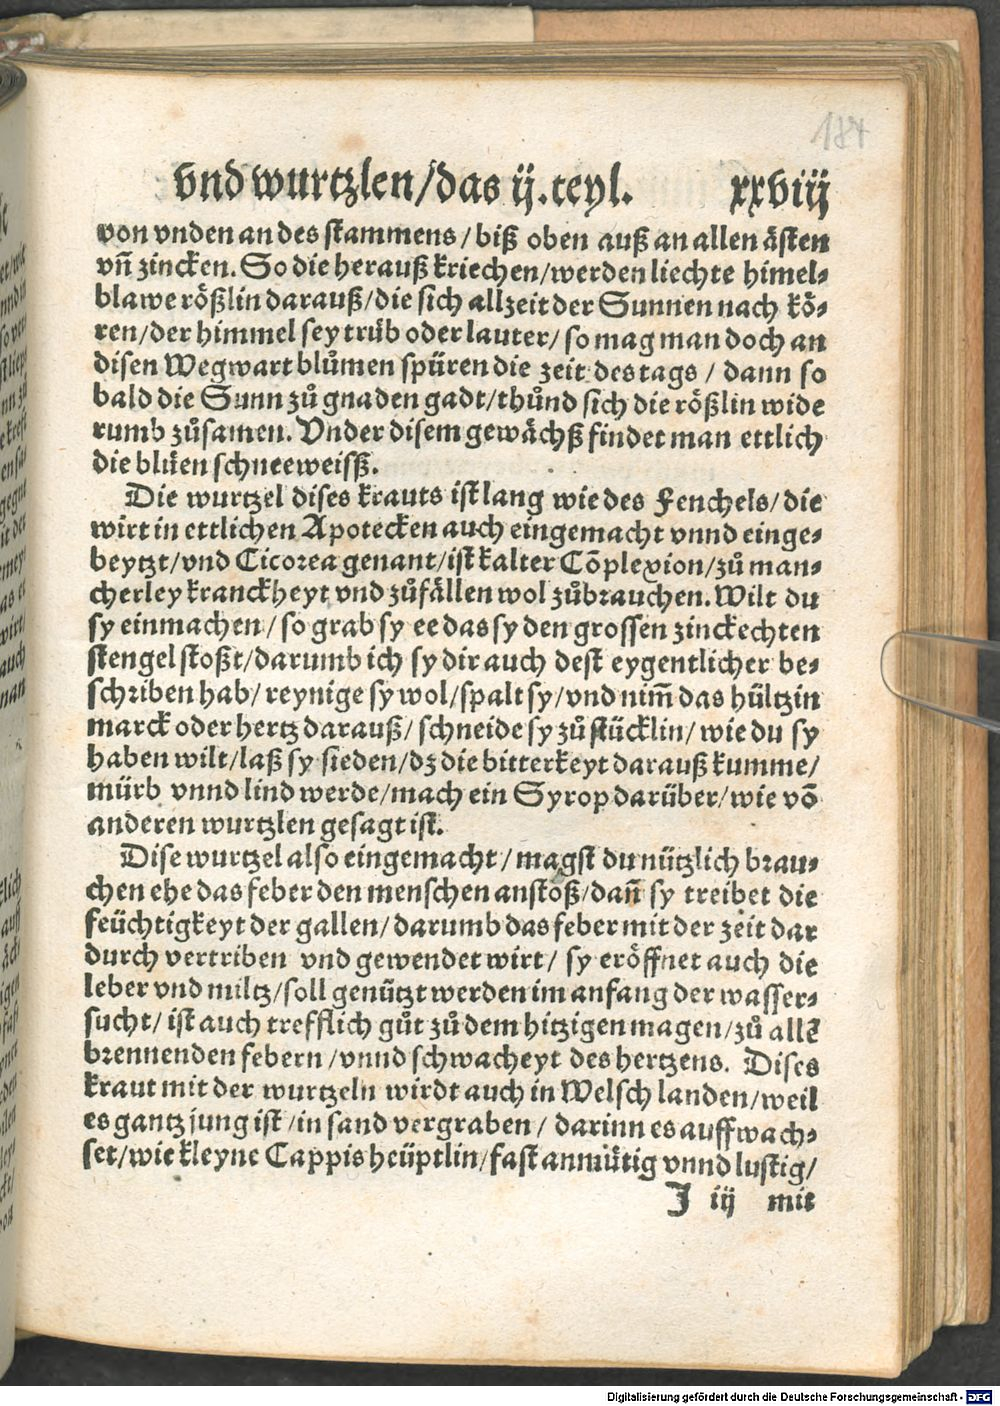 184
vnd wurtzlen/das ij.teyl. xxviij
von vnden an des stammens/biß oben auß an allen ästen
vñ zincken. So die herauß kriechen/werden liechte himel-
blawe rößlin darauß/die sich allzeit der Sunnen nach kö-
ren/der himmel sey trüb oder lauter/so mag man doch an
disen Wegwart blůmen spüren die zeit des tags/dann so
bald die Sunn zů gnaden gadt/thůnd sich die rößlin wide
rumb zůsamen. Vnder disem gewächß findet man ettlich
die blüen schneeweiss.
Die wurtzel dises krauts ist lang wie des Fenchels/die
wirt in ettlichen Apotecken auch eingemacht vnnd einge-
beytzt/vnd Cicorea genant/ist kalter Cõplexion/zů man-
cherley kranckheyt vnd zůfällen wol zůbrauchen. Wilt du
sy einmachen/so grab sy ee das sy den grossen zinckechten
stengel stoßt/darumb ich sy dir auch dest eygentlicher be-
schriben hab/reynige sy wol/spalt sy/vnd nim̃ das hültzin
marck oder hertz darauß/schneide sy zů stücklin/wie du sy
haben wilt/laß sy sieden/dz die bitterkeyt darauß kumme/
mürb vnnd lind werde/mach ein Syrop darüber/wie võ
anderen wurtzlen gesagt ist.
Dise wurtzel also eingemacht/magst du nützlich brau-
chen ehe das feber den menschen anstoß/dañ sy treibet die
feüchtigkeyt der gallen/darumb das feber mit der zeit dar
durch vertriben vnd gewendet wirt/sy eröffnet auch die
leber vnd miltz/soll genützt werden im anfang der wasser-
sucht/ist auch trefflich gůt zů dem hitzigen magen/zů allẽ
brennenden febern/vnnd schwacheyt des hertzens. Dises
kraut mit der wurtzeln wirdt auch in Welsch landen/weil
es gantz jung ist/in sand vergraben/darinn es auffwach-
set/wie kleyne Cappis heüptlin/fast anmütig vnnd lustig/
J iij mit
Digitalisierung gefördert durch die Deutsche Forschungsgemeinschaft - DFG